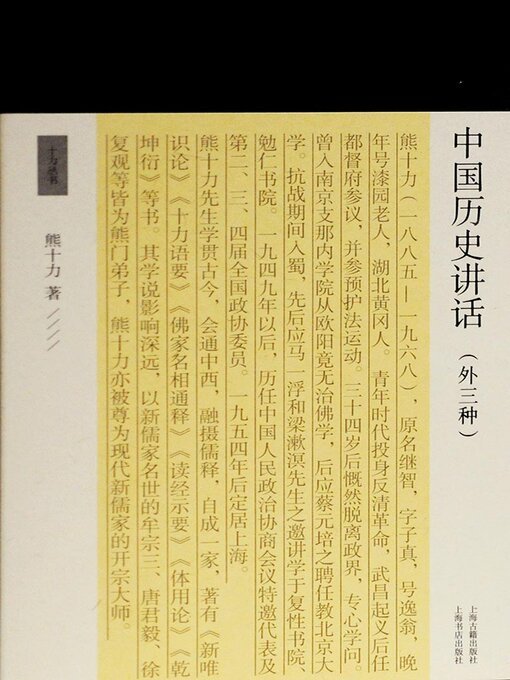 中国历史讲话(外三种)
上海古籍出版社
上海书店出版社
熊十力(一八八五—一九六八),原名继智,字子真,号逸翁,晚
年号漆园老人,湖北黄冈人。青年时代投身反清革命,武昌起义后任
都督府参议,并参预护法运动。三十四岁后慨然脱离政界,专心学问。
曾入南京支那内学院从欧阳竟无治佛学,后应蔡元培之聘任教北京大
学。抗战期间入蜀,先后应马一浮和梁漱溟先生之邀讲学于复性书院、
勉仁书院。一九四九年以后,历任中国人民政治协商会议特邀代表及
第二、三、四届全国政协委员。一九五四年后定居上海。
熊十力先生学贯古今,会通中西,融摄儒释,自成一家,著有《新唯
识论》《十力语要》《佛家名相通释》《读经示要》《体用论》《乾
坤衍》等书。其学说影响深远,以新儒家名世的牟宗三、唐君毅、徐
复观等皆为熊门弟子,熊十力亦被尊为现代新儒家的开宗大师。
十力丛书
熊十力 著